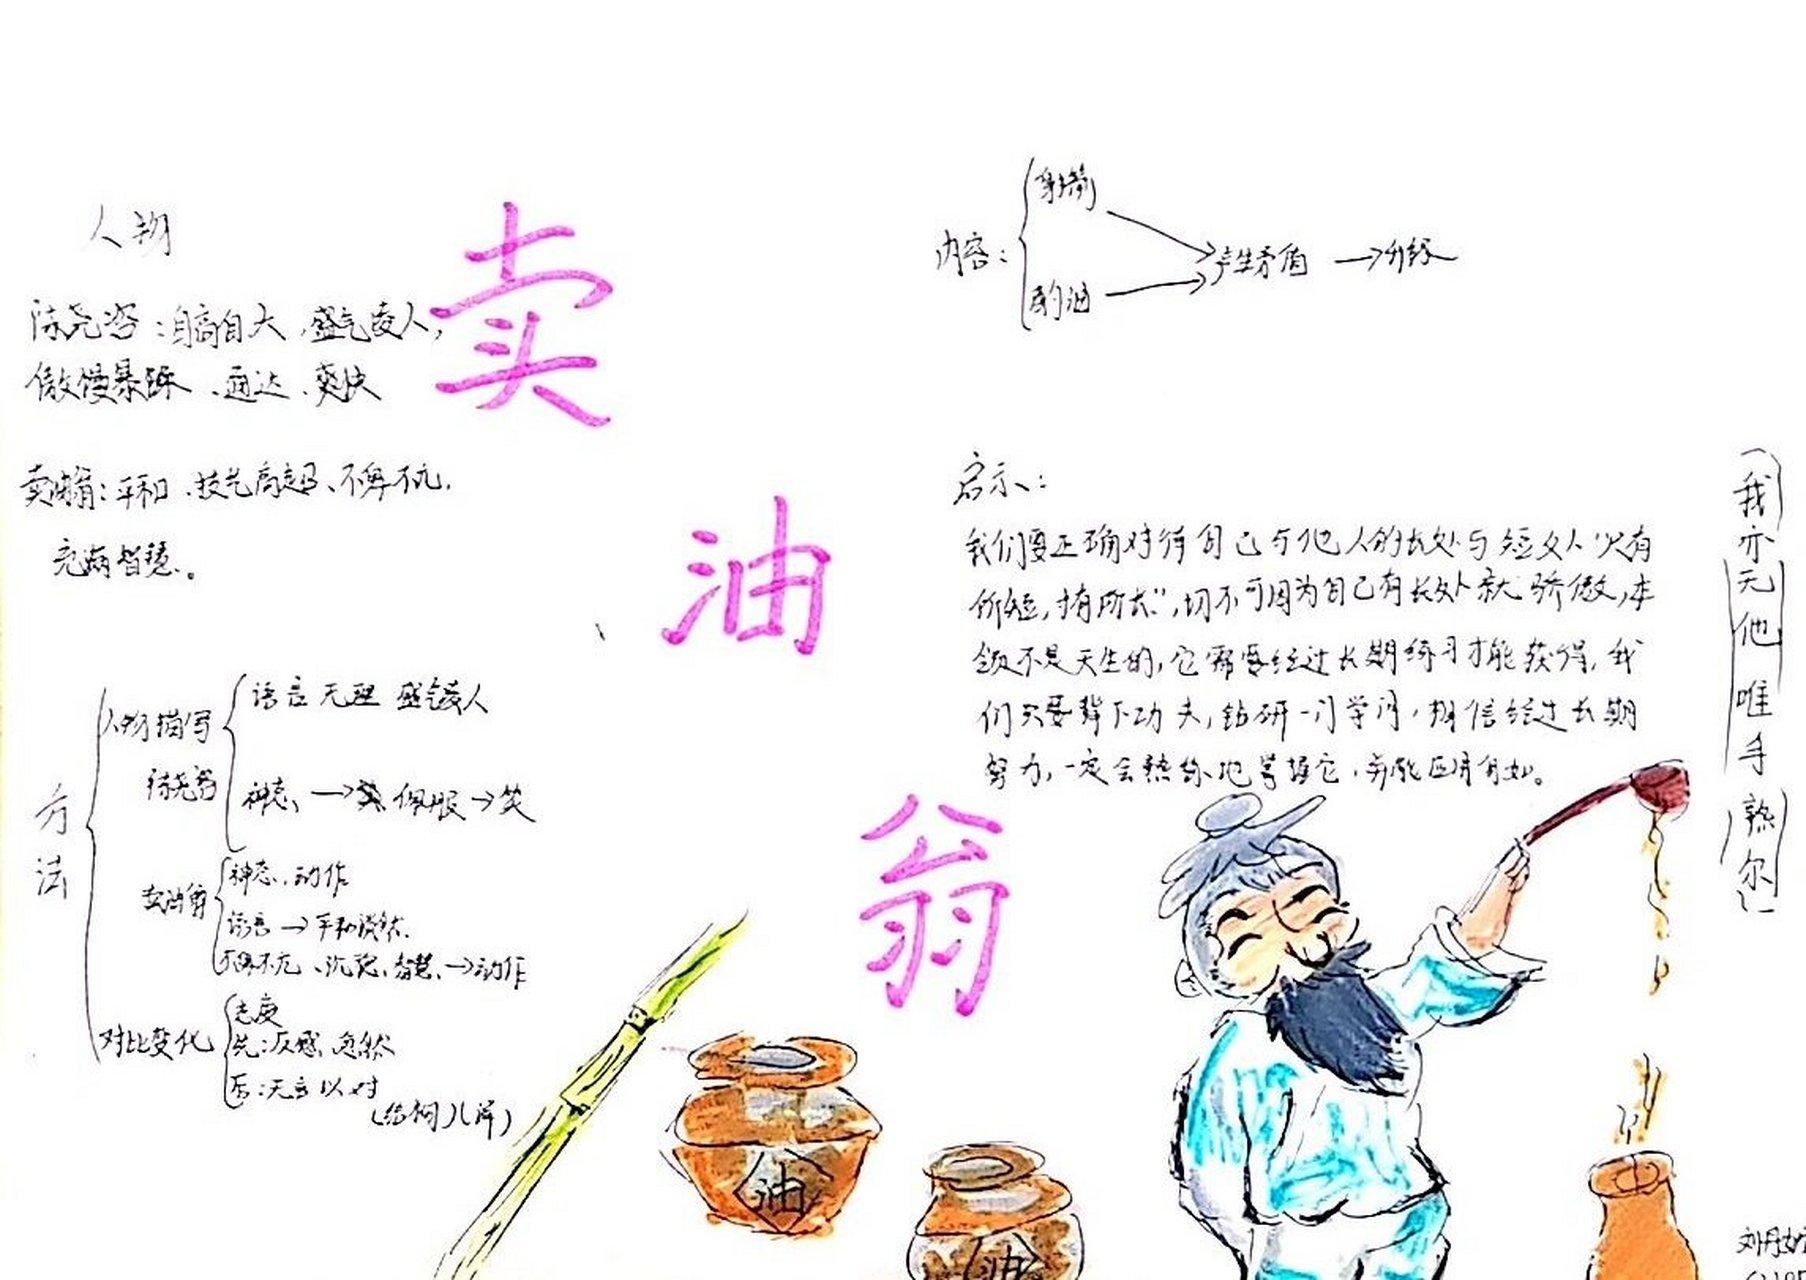 人物
陈尧咨：自高自大、盛气凌人，
傲慢暴躁、通达、爽快
卖油翁：平和、技艺高超、不卑不亢、
充满智慧。
卖
油
翁
内容：
射箭
酌油
产生矛盾
启示：
我们要正确对待自己与他人的长处与短
价短，才有所长”，切不可因为自己有长处就骄傲，本
领不是天生的，它需要经过长期练习才能获得，我
们只要背下功夫，钻研一门学问，相信经过长期
努力，一定会熟练地掌握它，并能应用自如。
（我亦无他 唯手熟尔）
方法
人物描写
陈尧咨
语言 无理 盛气凌人
神态 → 佩服 → 笑
卖油翁
神态、动作
语言 → 平和淡然
不卑不亢、沉稳、智慧 → 动作
对比变化
态度
先：反感、忿然
后：无言以对
油
油